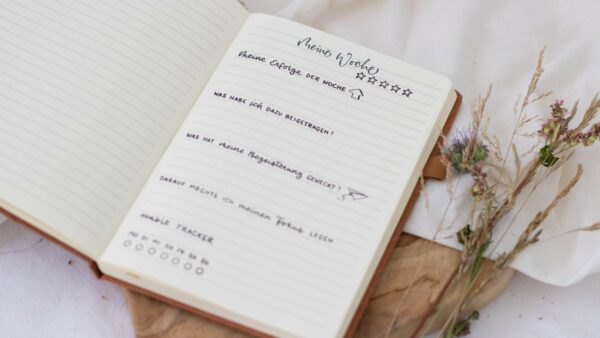 Meine Woche
Meine Erfolge DER WOCHE
WAS HABE ich DAZU BEIGETRAGEN?
WAS HAT meine Begeisterung GEWECKT?
DARAUF MÖCHTE ICH meinen Fokus LEGEN
Habit TRACKER
MO DI MI DO FR SA SO